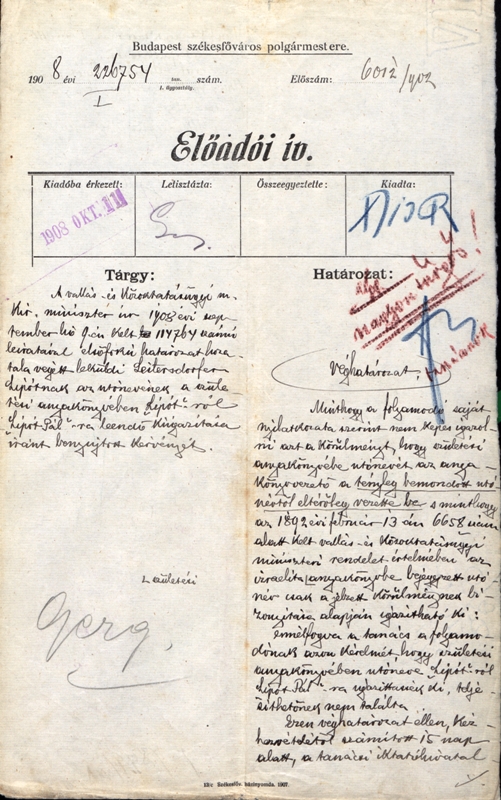 Budapest székesfőváros polgármestere.
1908 évi 226754 szám. Előszám: 6012/902
I
I. ügyosztály.
Előadói ív.
Kiadóba érkezett: Letisztázta: Összeegyeztette: Kiadta:
1908 OKT.
nagyon sürgős!
Tárgy:
A vallás- és Közoktatásügyi m.
Kir. miniszter úr 1908 évi szep
tember hó 9-én kelt 114764 számú
leiratával elsőfokú határozat hoza
tala végett leküldi Leitersdorfer
Lipótnak az utónevének a szüle
tési anyakönyvében "Lipót"-ról
"Lipót Pál"-ra leendő kiigazítása
iránt benyujtott kérvényét.
születési
Gerg.
Határozat:
Véghatározat.
Minthogy a folyamodó saját
nyilatkozata szerint nem képes igazol
ni azt a körülményt, hogy születési
anyakönyvébe utónevét az anya
könyvvezető a tényleg bemondott utó
névtől eltérőleg vezette be, s minthogy
az 1892 évi február 13 án 6658 szám
alatt kelt vallás- és Közoktatásügyi
miniszteri rendelet értelmében az
izraelita anyakönyvbe bejegyzett utó
név csak a jelzett körülménynek bi
zonyítása alapján igazítható ki:
ennélfogva a tanács a folyamo
dónak azon kérelmét, hogy születési
anyakönyvében utóneve "Lipót"-ról
"Lipót Pál"-ra igazíttassék ki, telje
síthetőnek nem találta.
Ezen véghatározat ellen, kéz
hezvételtől számított 15 nap
alatt, a tanácsi iktatóhivatal
Székesfőv. házinyomda. 1907.